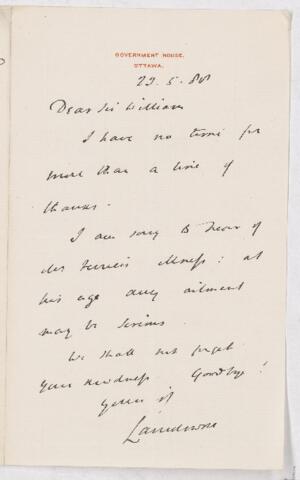 GOVERNMENT HOUSE,
OTTAWA.
23.5.88
Dear Sir William
I have no time for
more than a line of
thanks.
I am sorry to hear of
illness: at
his age any ailment
may be serious.
We shall not forget
your kindness. Goodbye!
Yours
Lansdowne